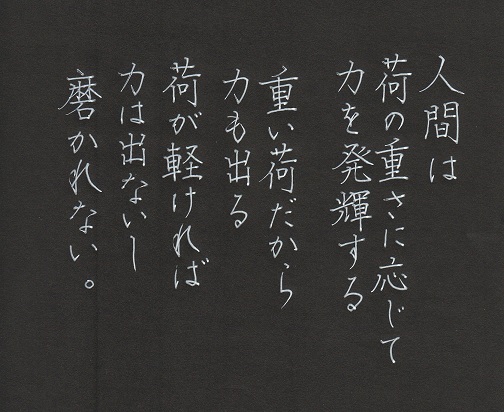 人間は
荷の重さに応じて
力を発揮する
重い荷だから
力も出る
荷が軽ければ
力は出ないし
磨かれない。